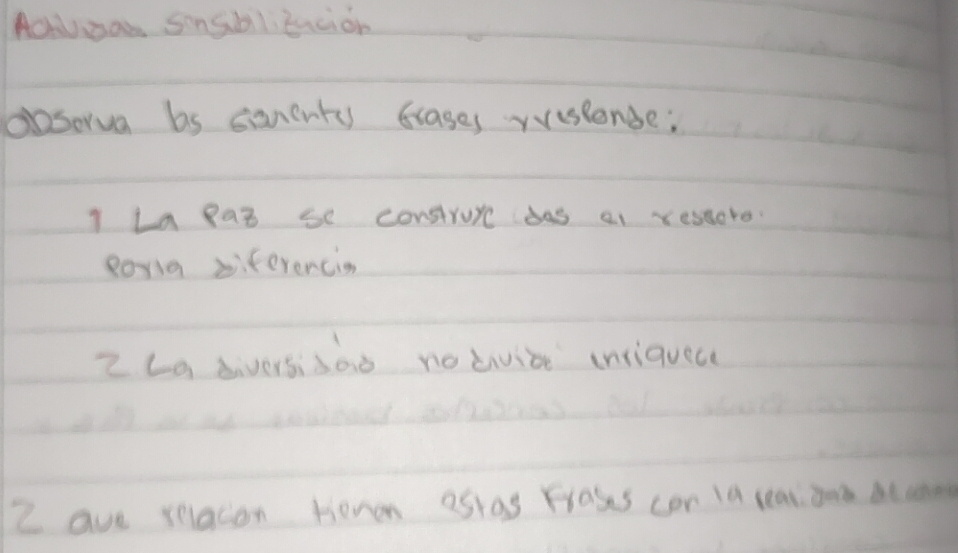 Actividad sinsibilización
Observa las siguientes frases y responde:
1 La paz se construye das el respeto
por la diferencia
2 La diversidad no divide enriquece
2 que relacon tienen estas frases con la realidad de